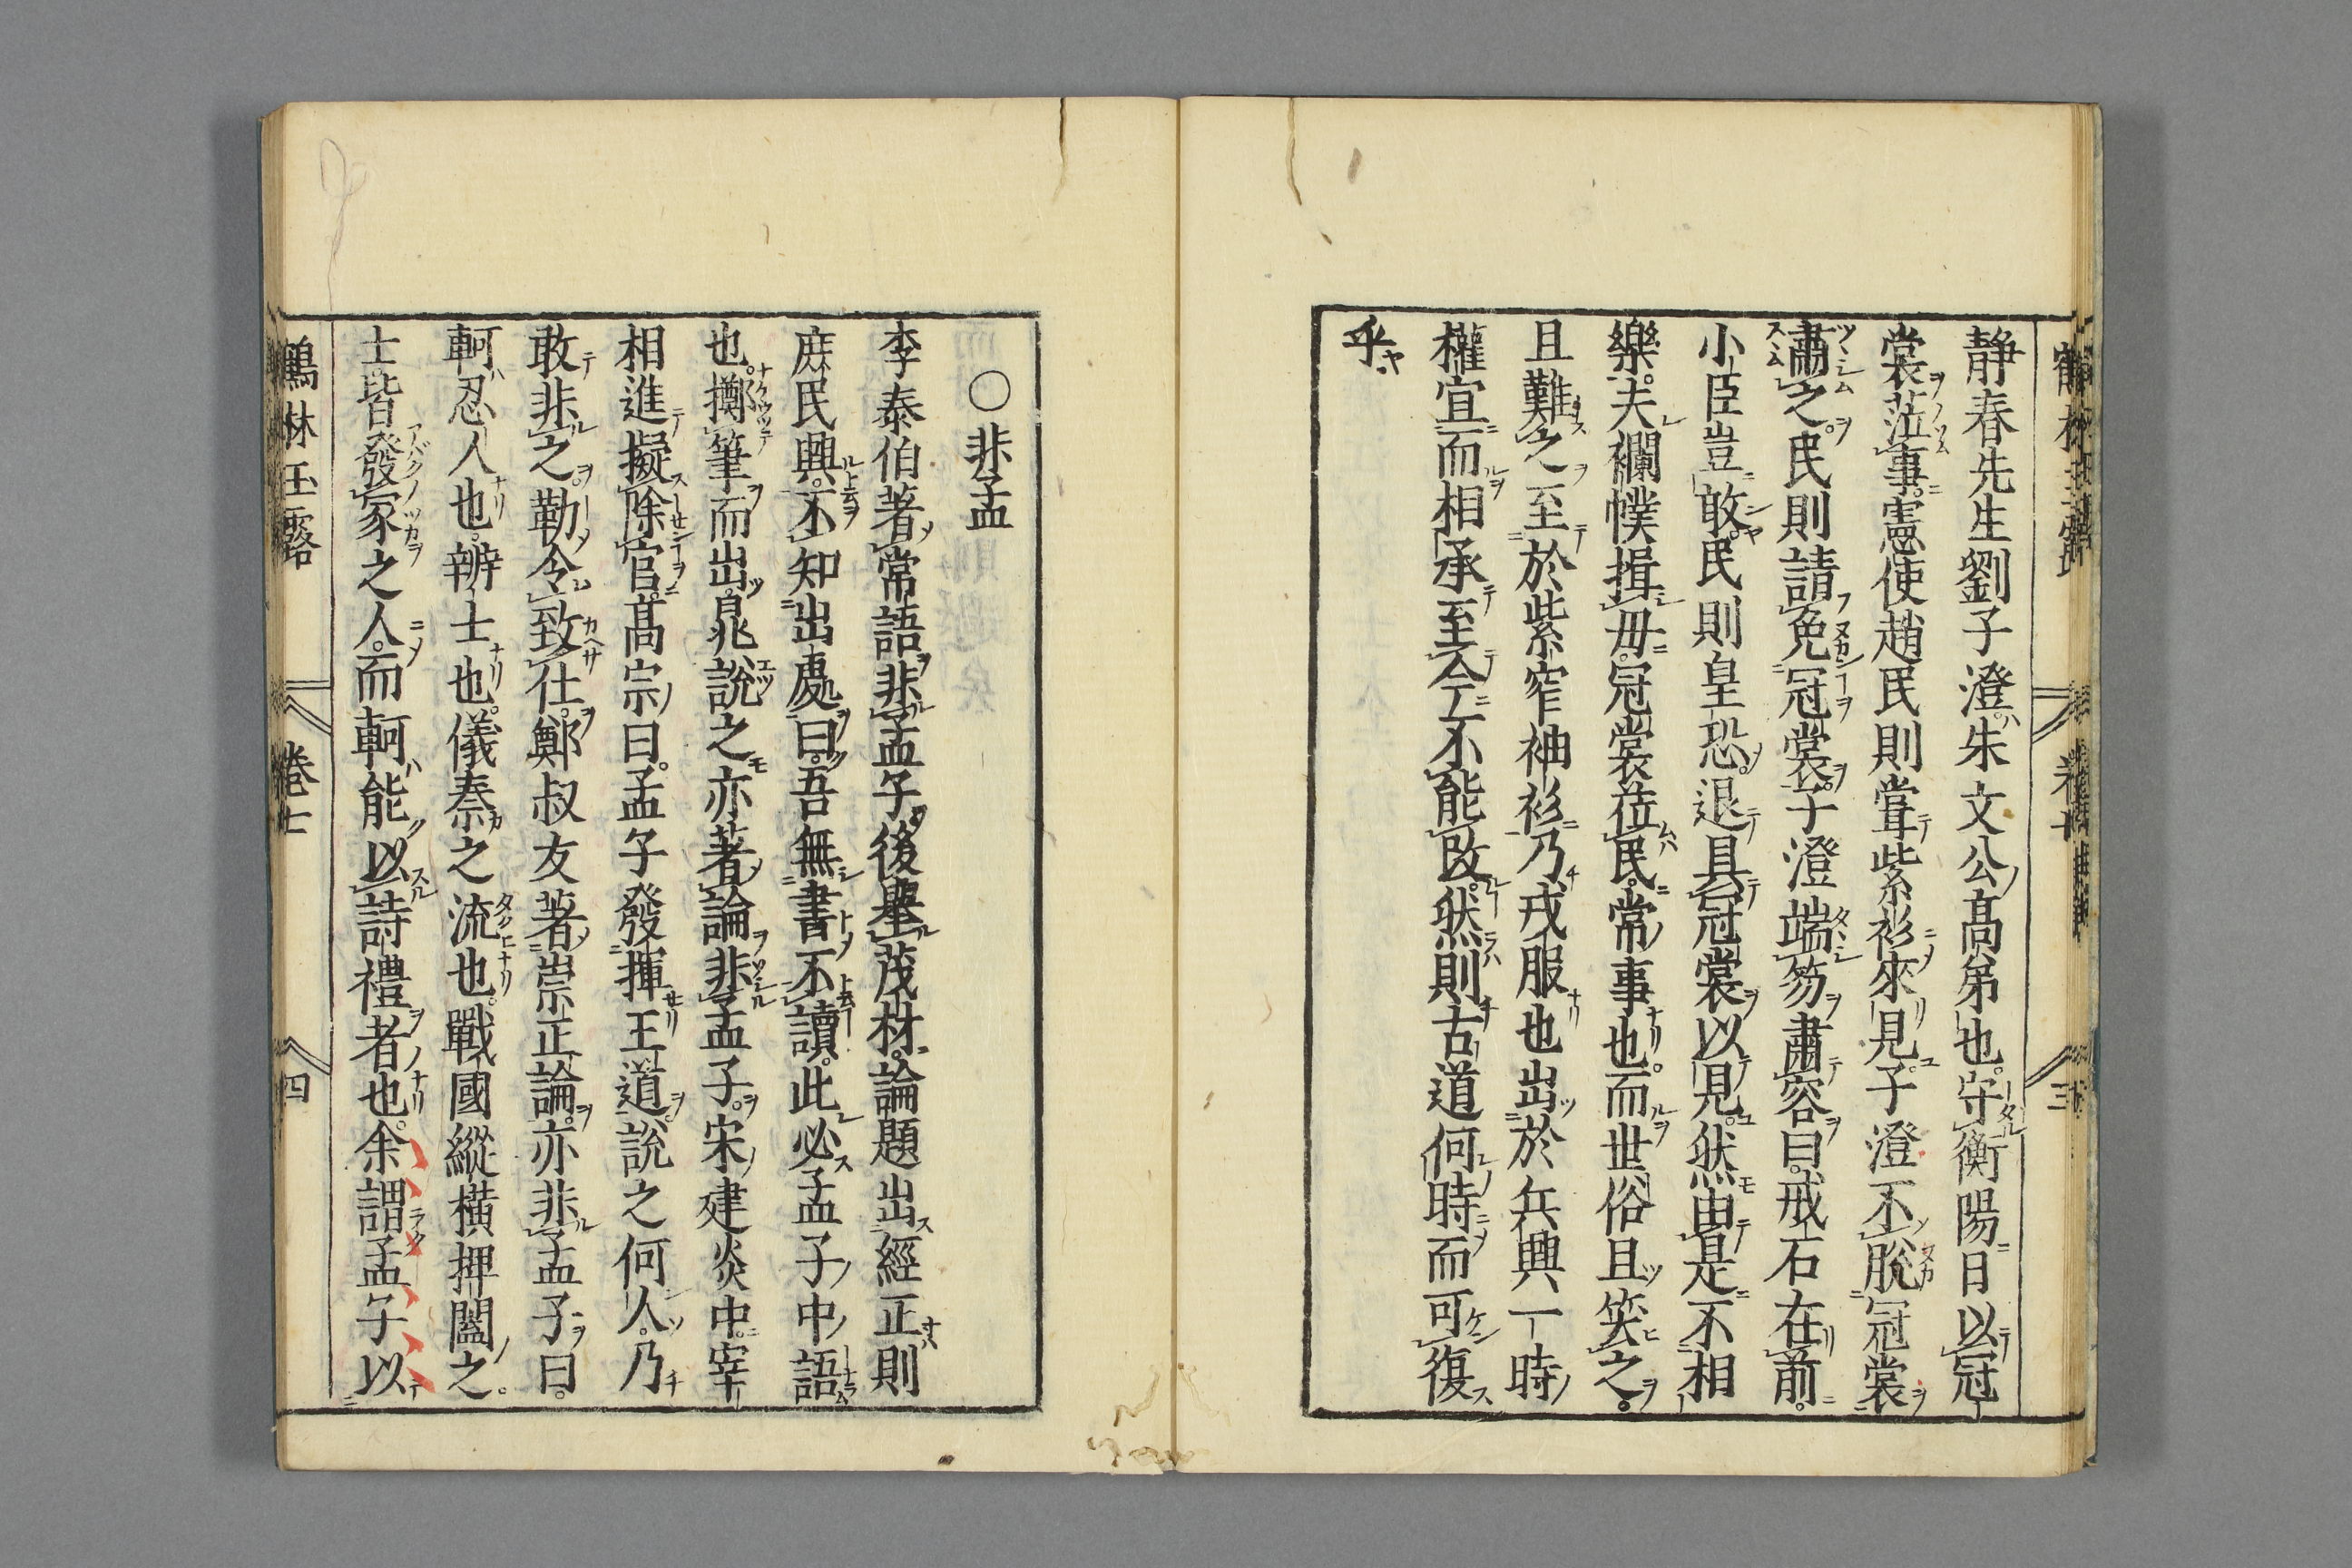 靜春先生劉子澄朱文公高弟也守衡陽日以冠
裳蒞事憲使趙民則嘗紫衫來見子澄不脫冠裳
肅之民則請免冠裳子澄端笏肅容曰戒石在前
小臣豈敢民則皇恐退具冠裳以見然由是不相
樂夫襴幞揖毋冠裳莅民常事也而世俗且笑之
且難之至於紫窄袖衫乃戎服也出於兵興一時
權宜而相承至今不能改然則古道何時而可復
乎
○非孟
李泰伯著常語非孟子後舉茂材論題出經正則
庶民興不知出處曰吾無書不讀此必孟子中語
也擲筆而出晁說之亦著論非孟子宋建炎中宰
相進擬除官高宗曰孟子發揮王道說之何人乃
敢非之勒令致仕鄭叔友著崇正論亦非孟子曰
軻忍人也辨士也儀秦之流也戰國縱橫押闔之
士皆發冢之人而軻能以詩禮者也余謂孟子以
鶴林玉露 卷七 四